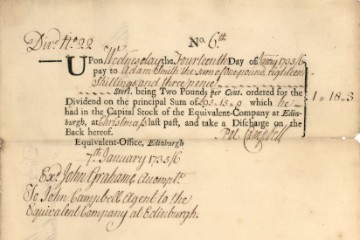 Divd. No. 22 No. 6th
Upon Wednesday the Fourteenth Day of January 1735/6
pay to Adam Smith the sum of one pound Eighteen
Shillings and three pence
Sterl. being Two Pounds per Cent. ordered for the 1 „ 18 „ 3
Dividend on the principal Sum of which he
had in the Capital Stock of the Equivalent-Company at Edin-
burgh, at Christmass last past, and take a Discharge on the
Back hereof. Pat Campbell
Equivalent-Office, Edinburgh
7th January 1735/6
Exd. John Grahame Accomptt.
To John Campbell Agent to the
Equivalent Company at Edinburgh.